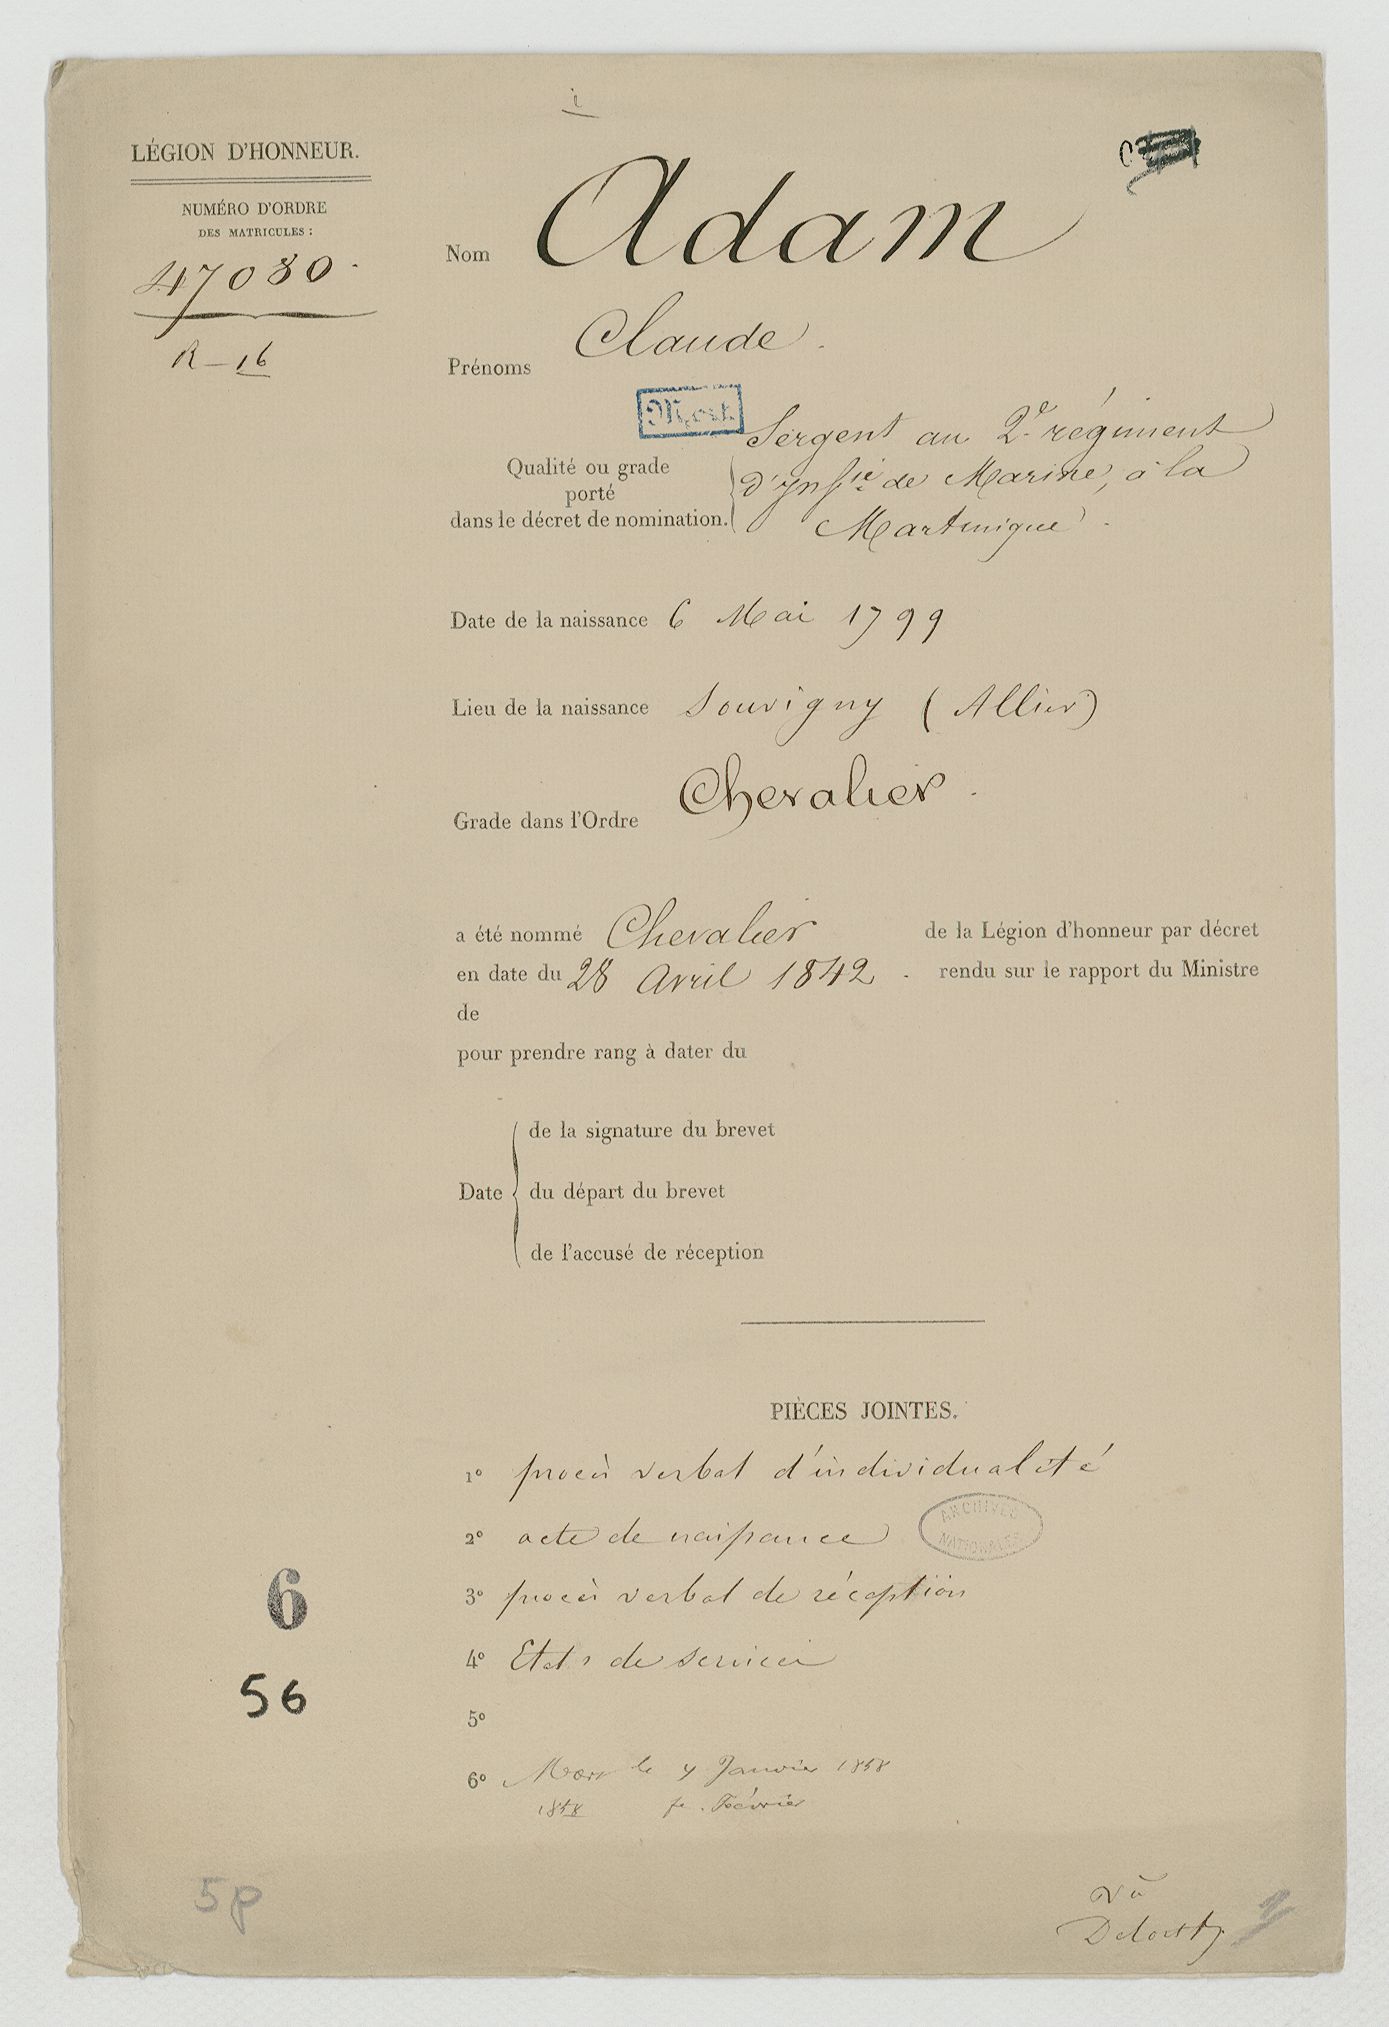 LÉGION D'HONNEUR.
NUMÉRO D'ORDRE
DES MATRICULES :
47080.
R-16
Nom Adam
Prénoms Claude.
Mort.
Qualité ou grade
porté
dans le décret de nomination.
Sergent au 2e régiment
d'Infie de Marine, à la
Martinique.
Date de la naissance 6 Mai 1799
Lieu de la naissance Souvigny (Allier)
Grade dans l'Ordre Chevalier.
a été nommé Chevalier de la Légion d'honneur par décret
en date du 28 Avril 1842. rendu sur le rapport du Ministre
de
pour prendre rang à dater du
Date
de la signature du brevet
du départ du brevet
de l'accusé de réception
PIÈCES JOINTES.
1º procès verbal d'individualité
2º acte de naissance
ARCHIVES
NATIONALES
3º procès verbal de réception
4º Etats de services
5º
6º Mort le 4 Janvier 1858
1858 fe. Février
6
56
5p
Vu